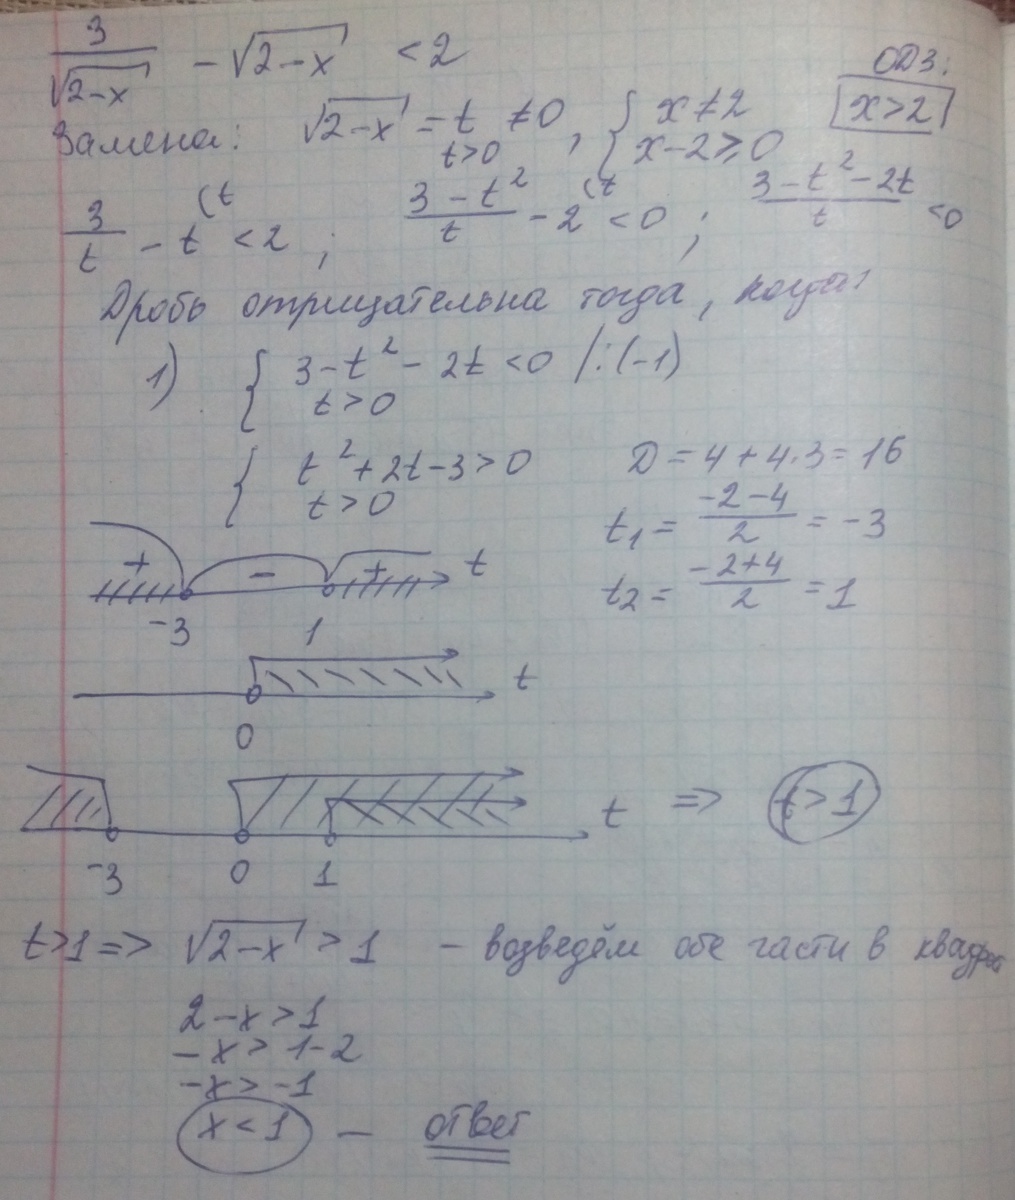 3/√(2-x) - √(2-x) < 2
ОДЗ:
x>2
Замена: √(2-x) = t ≠0, { x≠2
t>0 x-2≥0
3/t - t^(t < 2 ; (3-t²)/t - 2^(t < 0 ; (3-t²-2t)/t <0
Дробь отрицательна тогда, когда:
1) { 3-t²-2t <0 /:(-1)
t>0
{ t²+2t-3>0
t>0
D = 4+4·3=16
t1 = (-2-4)/2 = -3
t2 = (-2+4)/2 = 1
+ - + t
-3 1
t
0
t => t>1
-3 0 1
t>1 => √(2-x) > 1 - возведём обе части в квадрат
2-x>1
-x> 1-2
-x> -1
x<1 - ответ